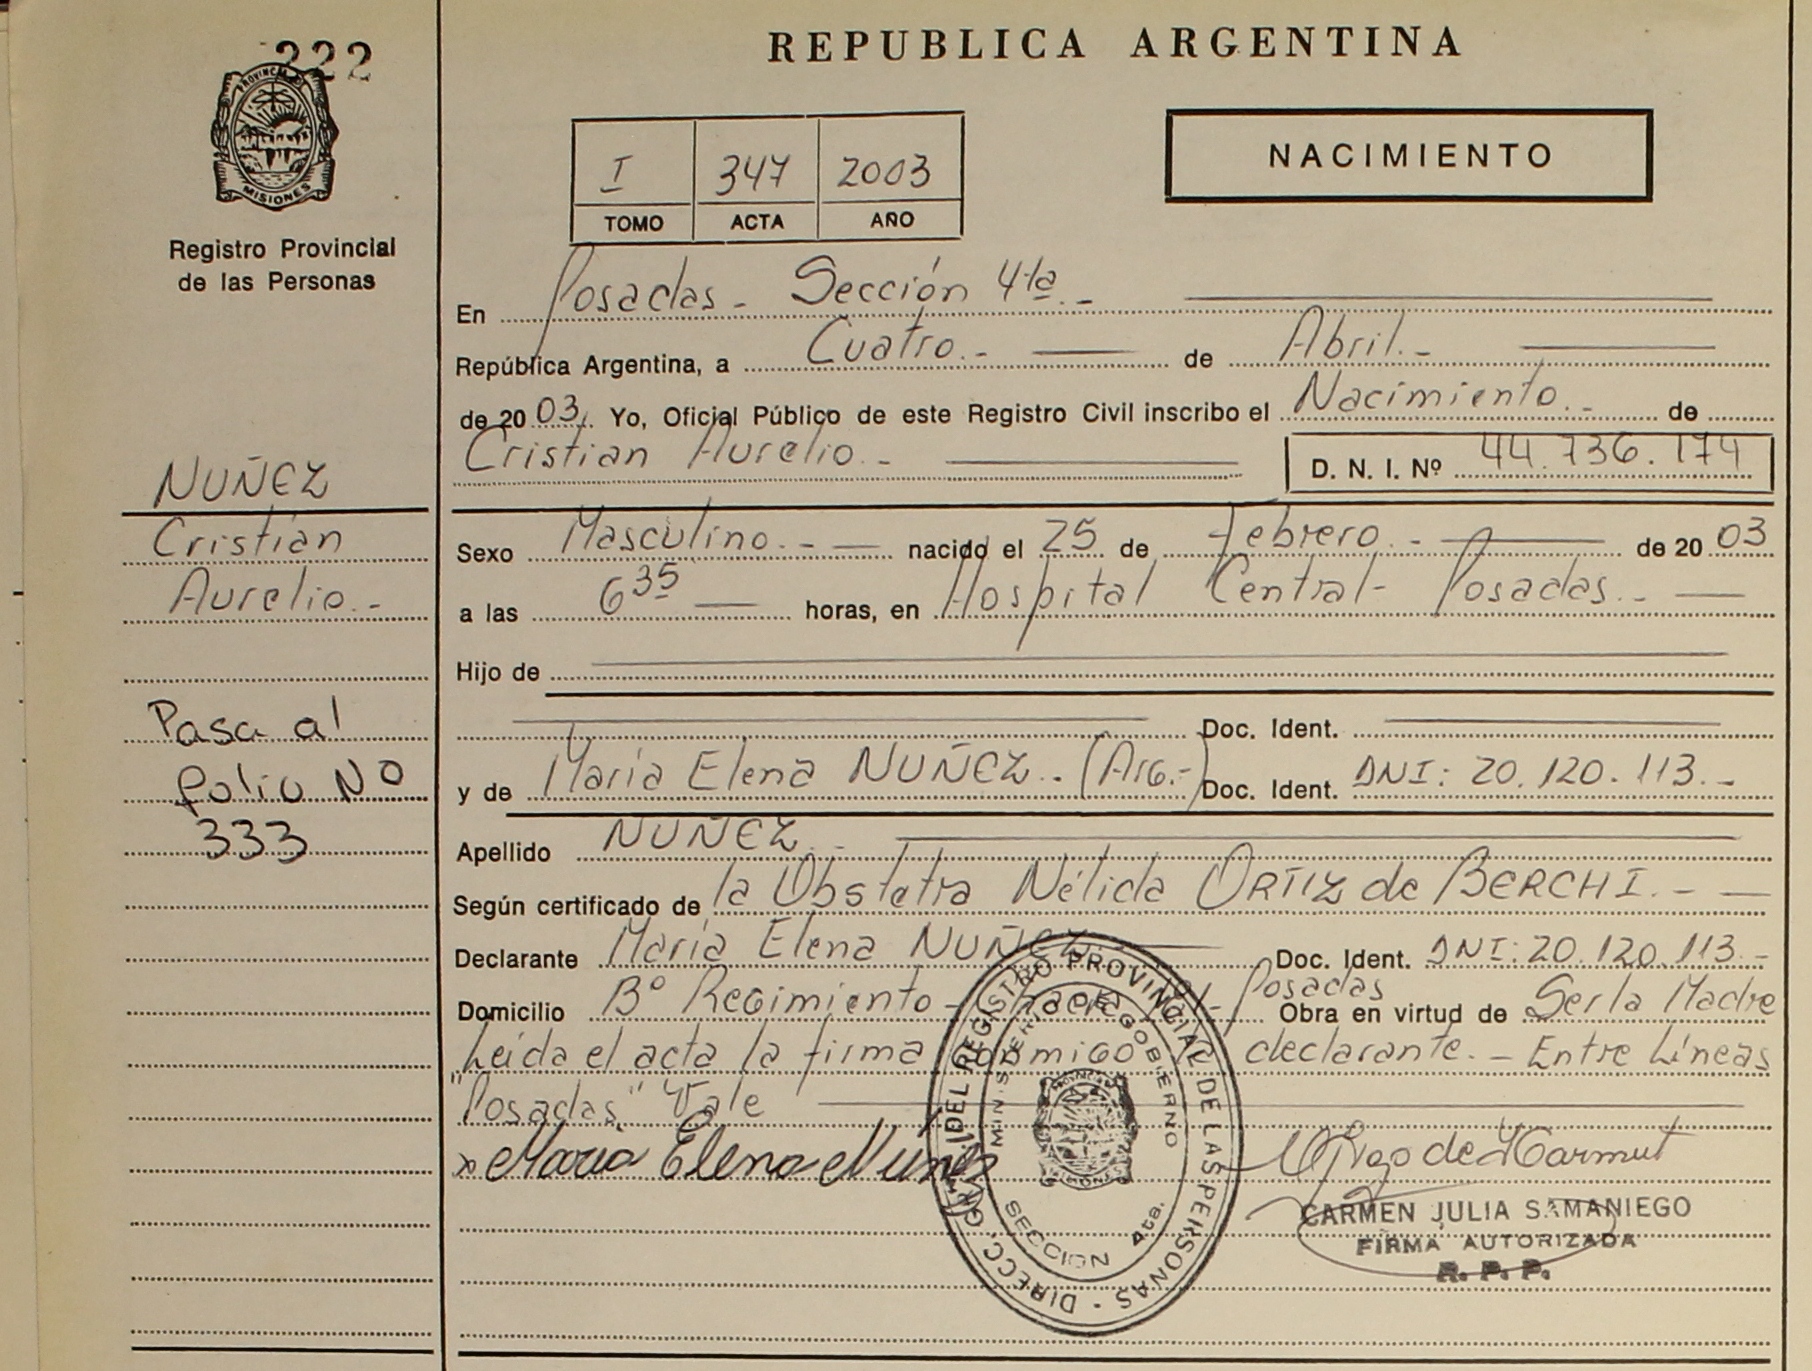 222
PROVINCIA DE
MISIONES
Registro Provincial
de las Personas
NUÑEZ
Cristian
Aurelio.-
Pasa al
folio Nº
333
REPUBLICA ARGENTINA
I 347 2003
TOMO ACTA AÑO
NACIMIENTO
En Posadas - Sección 4ta.-
República Argentina, a Cuatro.- de Abril.-
de 20 03. Yo, Oficial Público de este Registro Civil inscribo el Nacimiento.- de
Cristian Aurelio.- D. N. I. Nº 44.736.174
Sexo Masculino.- nacido el 25 de febrero.- de 20 03
a las 6 35 horas, en Hospital Central - Posadas.-
Hijo de
Doc. Ident.
y de María Elena NUÑEZ.. (Arg.-) Doc. Ident. DNI: 20.120.113.-
Apellido NUÑEZ.-
Según certificado de la Obstetra Nélida ORTIZ de BERCHI.-
Declarante María Elena NUÑEZ.- Doc. Ident. DNI: 20.120.113.-
Posadas
Domicilio Bº Regimiento - Obra en virtud de Ser la Madre
Leída el acta la firma conmigo la declarante.- Entre Líneas
"Posadas" Vale
x María Elena Nuñez
CARMEN JULIA SAMANIEGO
FIRMA AUTORIZADA
R. P. P.
DIRECC. GRAL. DEL REGISTRO PROVINCIAL DE LAS PERSONAS -
MINISTERIO DE GOBIERNO
SECCION 4ta.